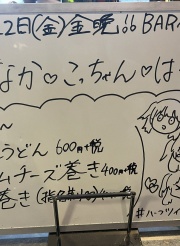 2日(金)金晩 BAR
なか♡こっちゃん♡は
うどん 600円+税
ムチーズ巻き 400円+税
巻き (指名料
#ハーフツイ